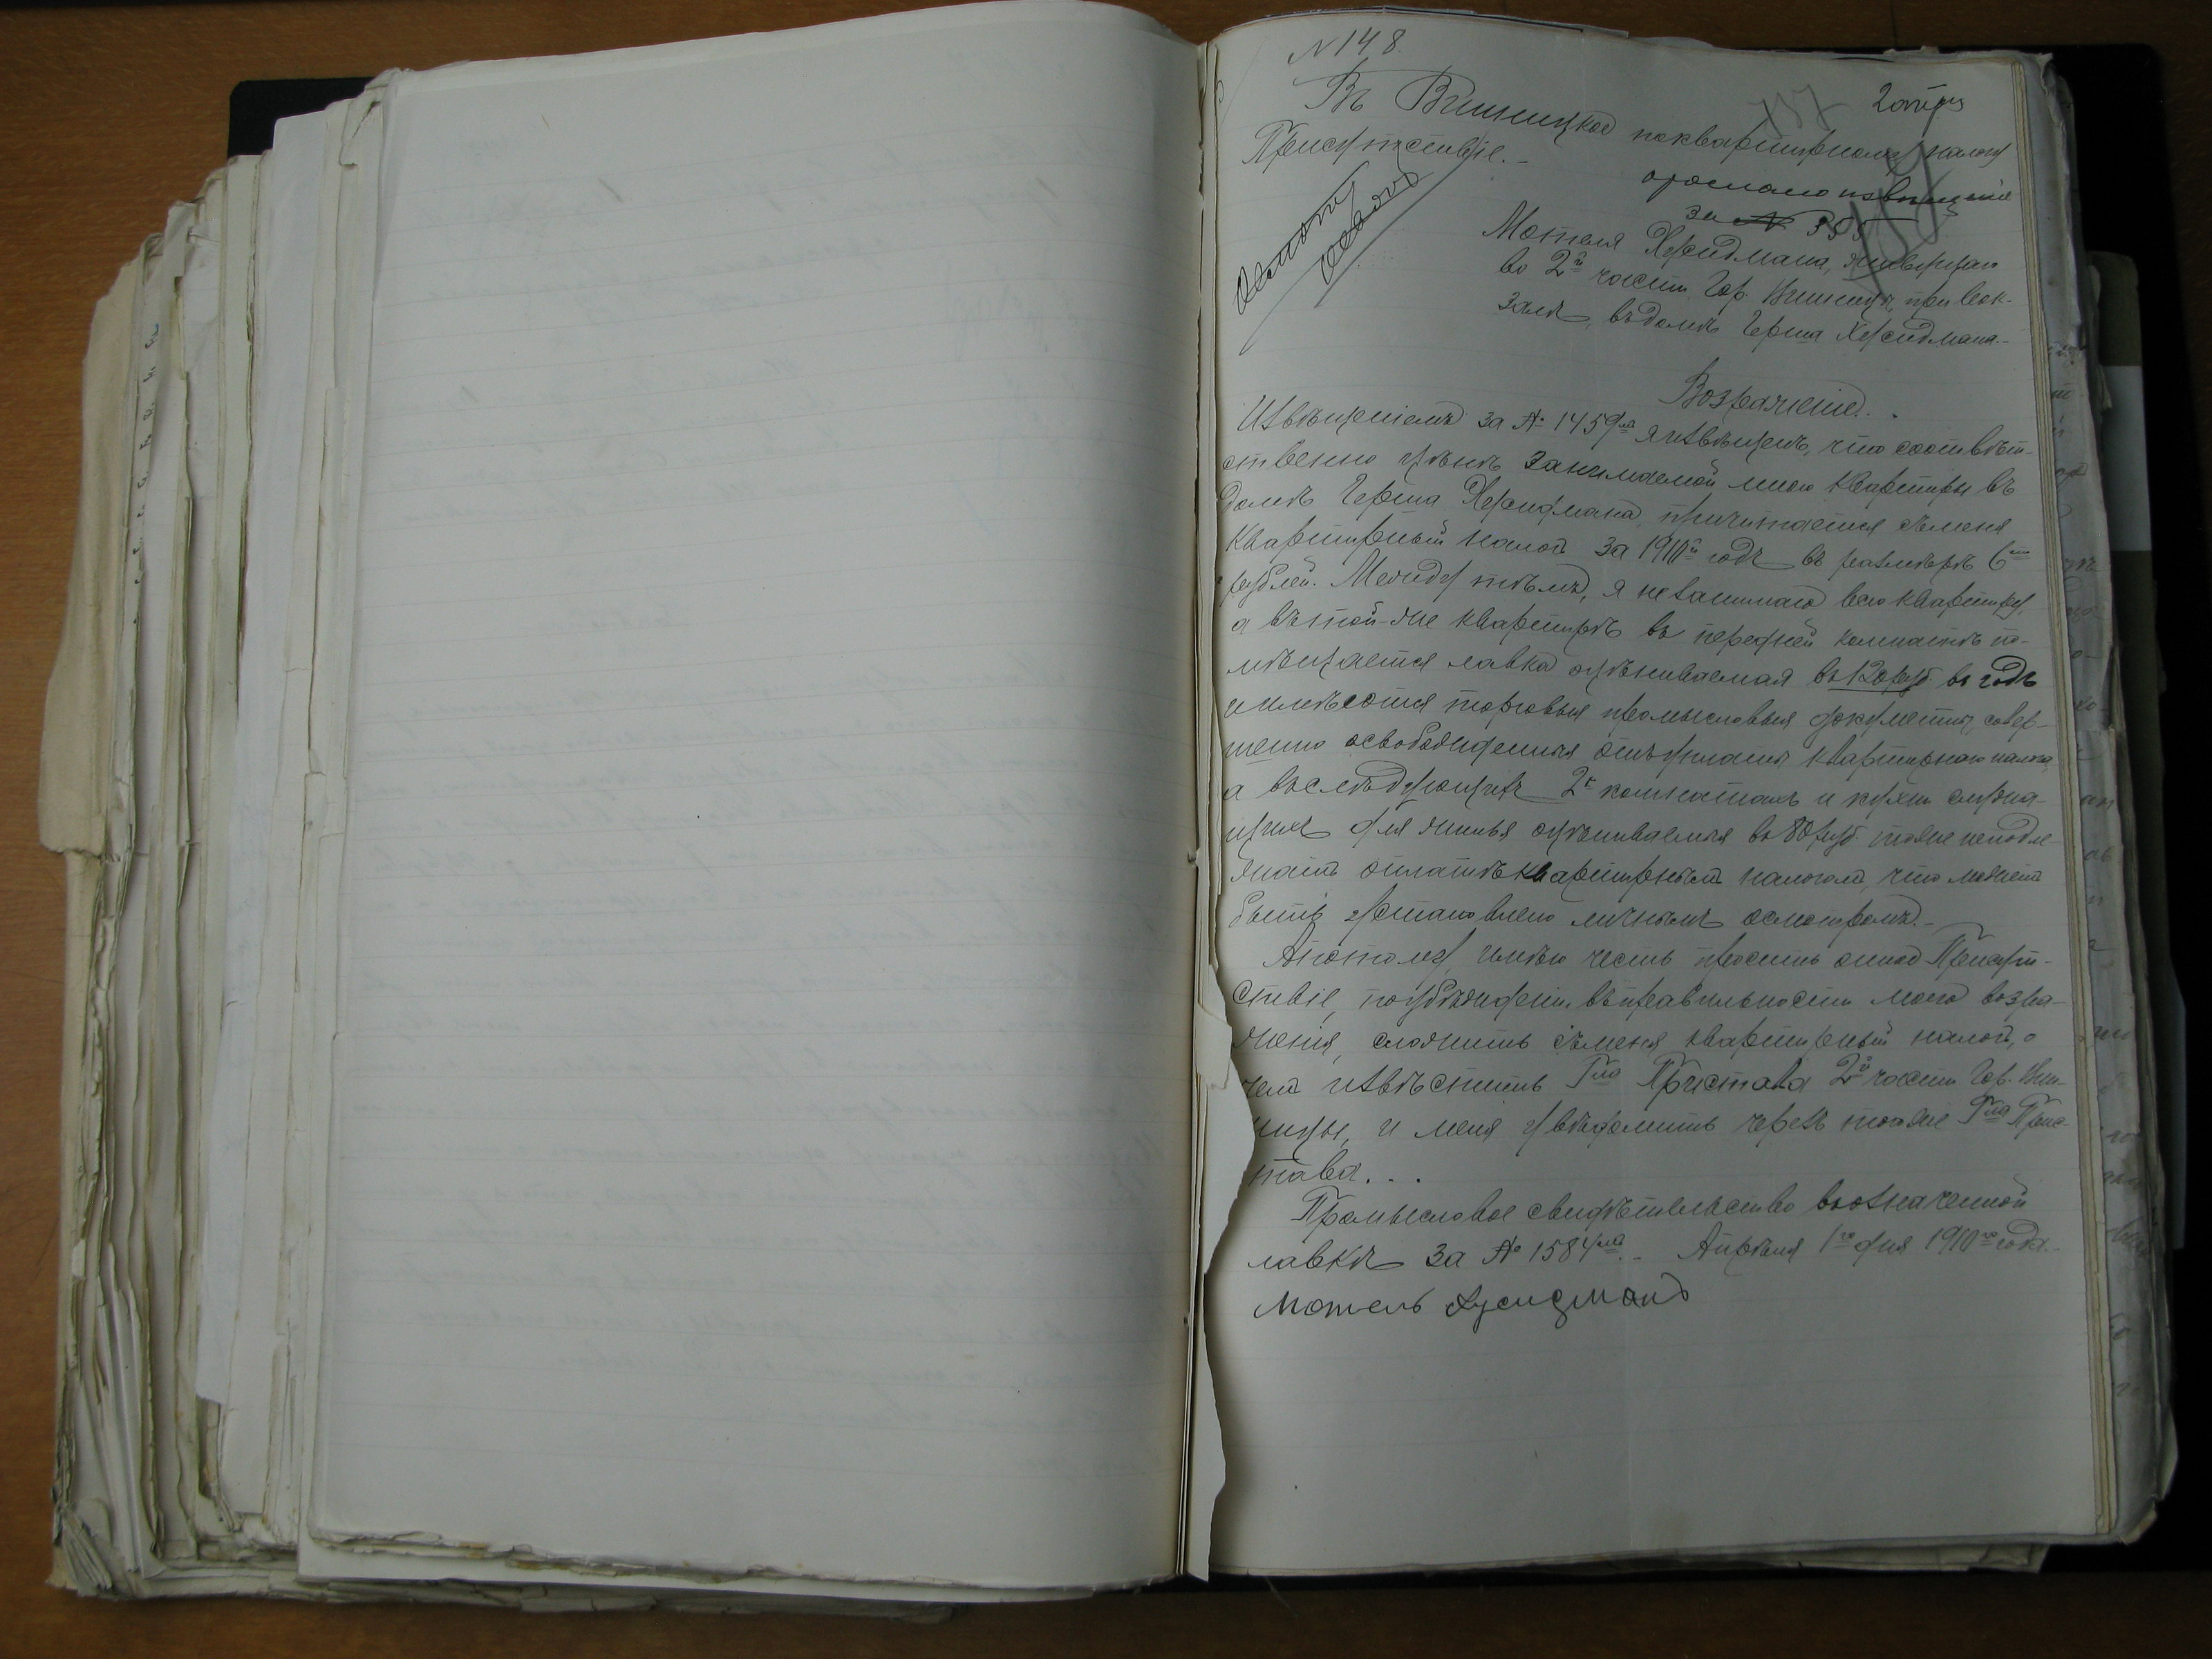 № 148
2 апр
737
Въ Винницкое по квартирному налогу
Присутствіе.-
послано извѣщеніе
за № 355
Мотеля Хусидмана, живущаго
во 2й части Гор. Винницы, при вок-
залѣ, въ домѣ Герша Хусидмана.-
Возраженіе.
Извѣщеніемъ за № 1459мъ я извѣщенъ, что соотвѣт-
ственно цѣнѣ занимаемой мною квартиры въ
домѣ Герша Хусидмана, причитается съ меня
квартирный налогъ за 1910й годъ въ размѣрѣ 6ти
рублей. Между тѣмъ, я не занимаю всю квартиру,
а въ той-же квартирѣ въ передней комнатѣ по-
мѣщается лавка оцѣниваемая въ 120 руб. въ годъ
и имѣются торговыя промысловыя документы, совер-
шенно освобожденныя отъ уплаты квартирнаго налога,
а въ слѣдующихъ 2х комнатахъ и кухни служа-
щихъ для жилья оцѣниваемыя въ 80 руб. тоже неподле-
жатъ оплатѣ квартирнымъ налогомъ, что можетъ
быть установлено личнымъ осмотромъ.-
А потому, имѣю честь просить оное Присут-
ствіе, по убѣжденіи въ правильности моего возра-
женія, сложить съ меня квартирный налогъ, о
чемъ извѣстить Гна Пристава 2й части Гор. Вин-
ницы, и меня увѣдомить черезъ тогоже Гна Прис-
тава...
Промысловое свидѣтельство вышозначенной
лавкѣ за № 1584мъ.- Апрѣля 1го дня 1910го года.
Мотель Хусидманъ